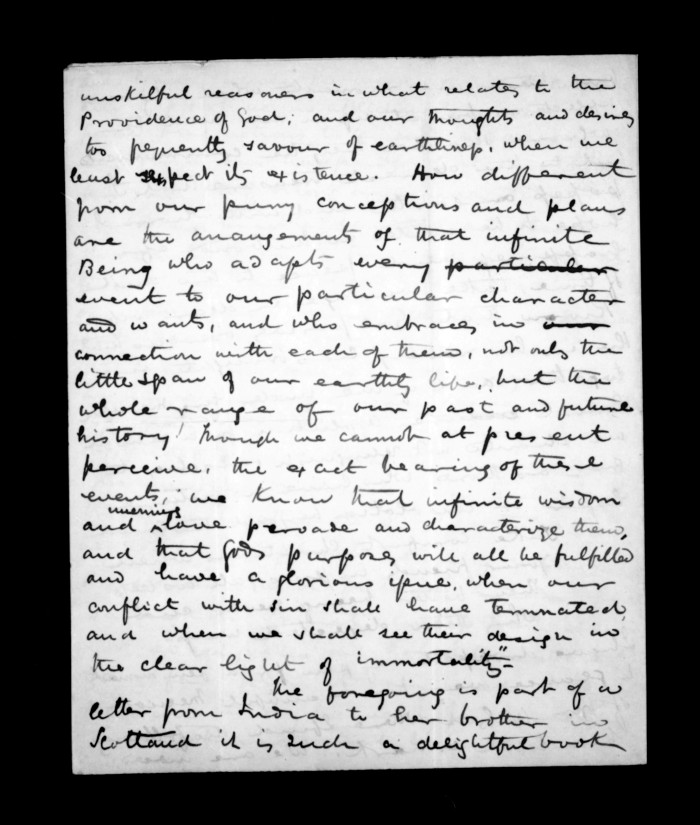 unskilful reasoners in what relates to the
Providence of God; and our thoughts and desires
too frequently savour of earthliness, when we
least suspect its existence. How different
from our puny conceptions and plans
are the arrangements of that infinite
Being who adapts every particular
event to our particular character
and wants, and who embraces in our
connection with each of them, not only the
little span of our earthly life, but the
whole range of our past and future
history! Though we cannot at present
perceive, the exact bearing of these
events, we know that infinite wisdom
unerring
and love pervade and characterize them,
and that God's purposes will all be fulfilled
and have a glorious issue, when our
conflict with sin shall have terminated,
and when we shall see their design in
the clear light of immortality"-
The foregoing is part of a
letter from India to her brother in
Scotland it is such a delightful book